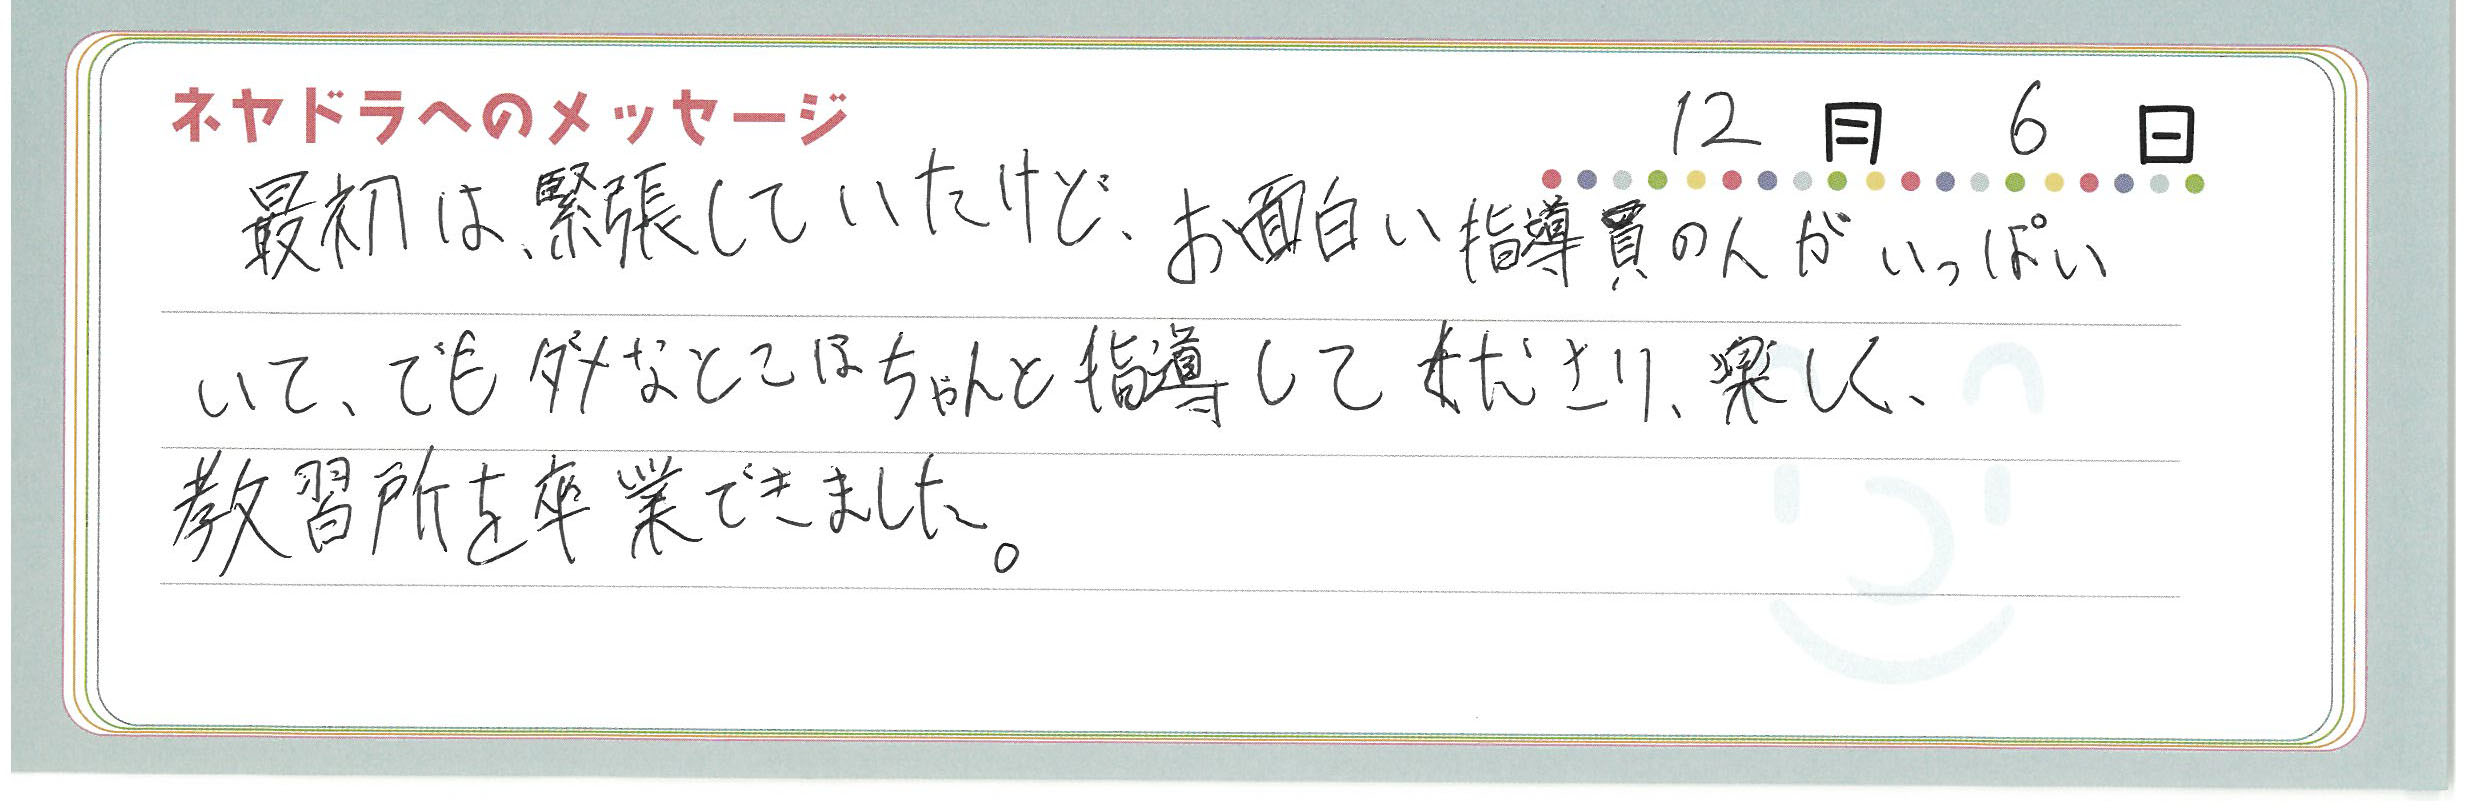 ネヤドラへのメッセージ
12月6日
最初は、緊張していたけど、お面白い指導員の人がいっぱい
いて、でもダメなとこはちゃんと指導してくださり、楽しく、
教習所を卒業できました。